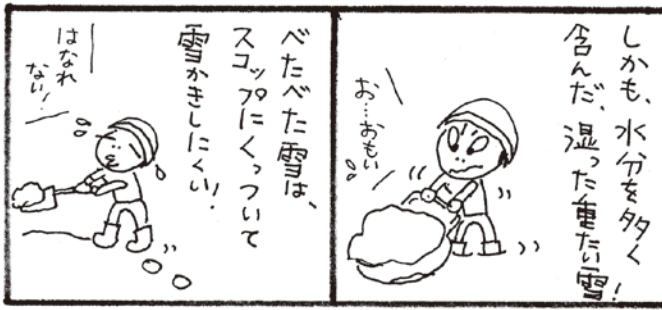 しかも、水分を多く
含んだ、湿った重たい雪!
お…おもい
べたべた雪は、
スコップにくっついて
雪かきしにくい!
はなれ
ない!